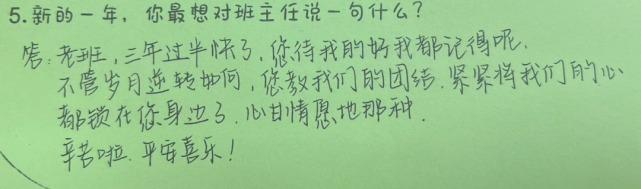 5.新的一年，你最想对班主任说一句什么？
答：老班，三年过半快了，您待我的好我都记得呢.
不管岁月逆转如何，您教我们的团结.紧紧将我们的心
都锁在您身边了.心甘情愿地那种.
辛苦啦.平安喜乐！